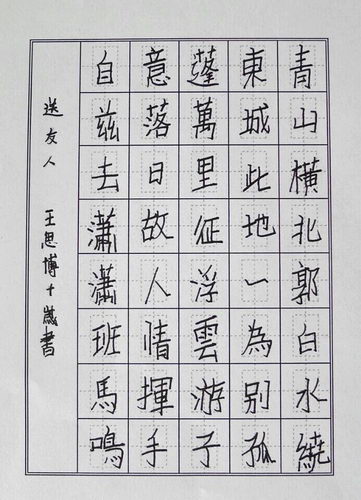 青山橫北郭白水繞
東城此地一為别孤
蓬萬里征浮雲游子
意落日故人情揮手
自兹去瀟瀟班馬鳴
送友人 王思博十歲書